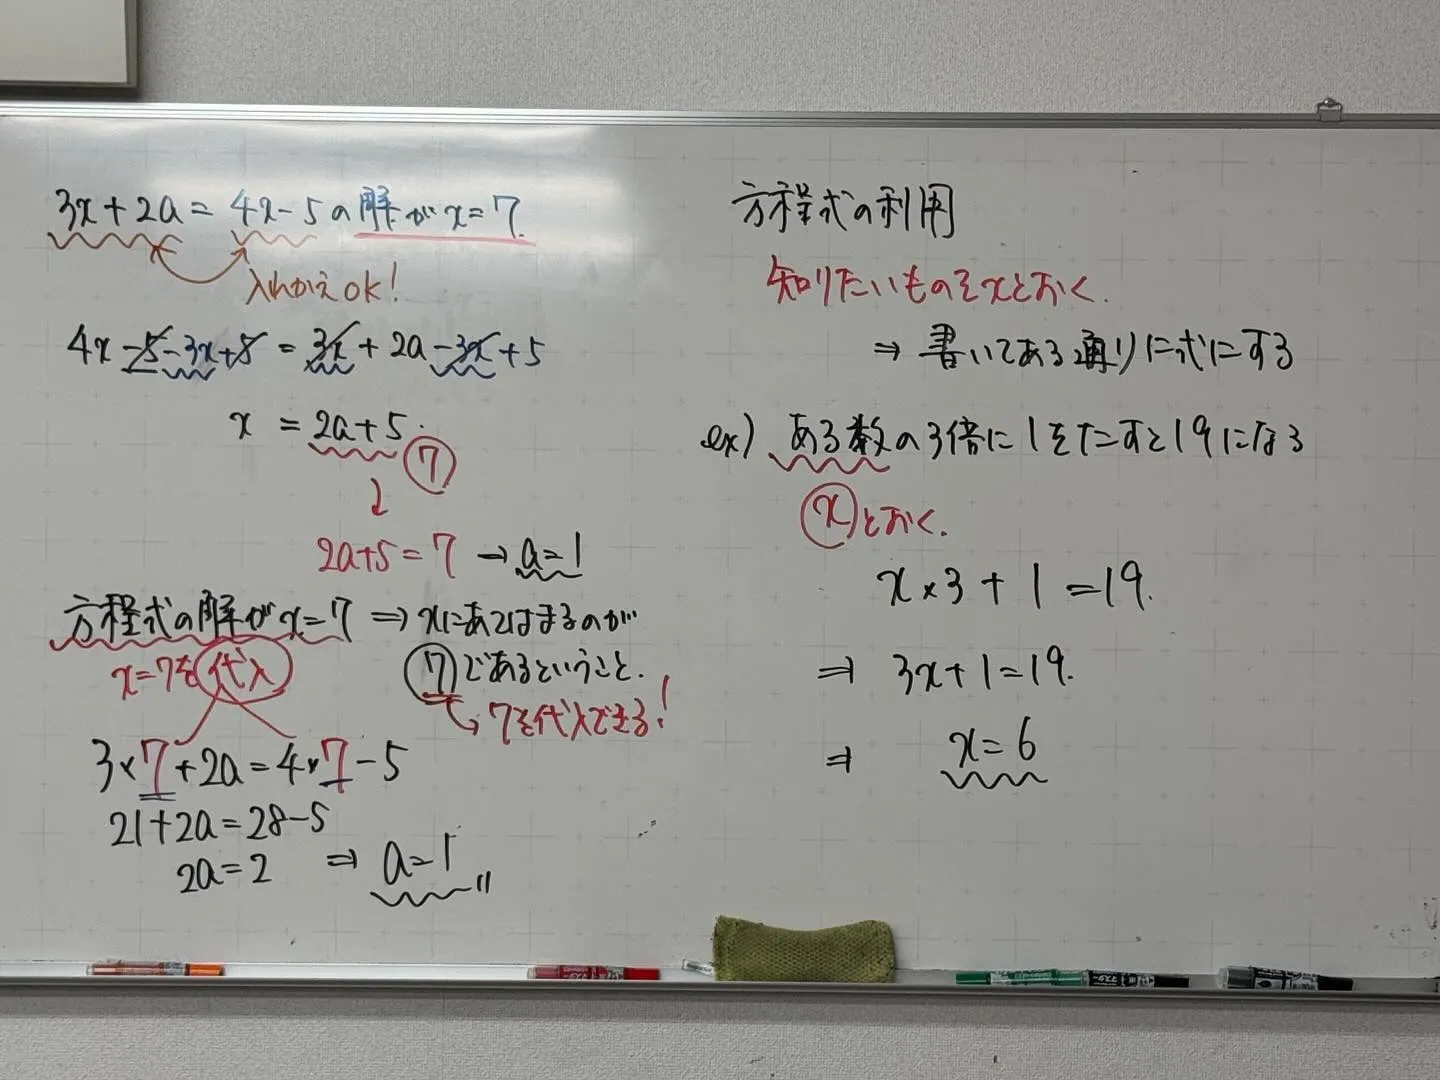 3x+2a=4x-5の解がx=7.
入れかえOK!
4x-5-3x+5=3x+2a-3x+5
x=2a+5.
7
2a+5=7→a=1
方程式の解がx=7⇒xにあてはまるのが
7であるということ.
x=7を代入
7を代入できる!
3×7+2a=4×7-5
21+2a=28-5
2a=2⇒a=1〃
方程式の利用
知りたいものをxとおく.
⇒書いてある通りに式にする
ex) ある数の3倍に1をたすと19になる
xとおく.
x×3+1=19.
⇒3x+1=19.
⇒x=6